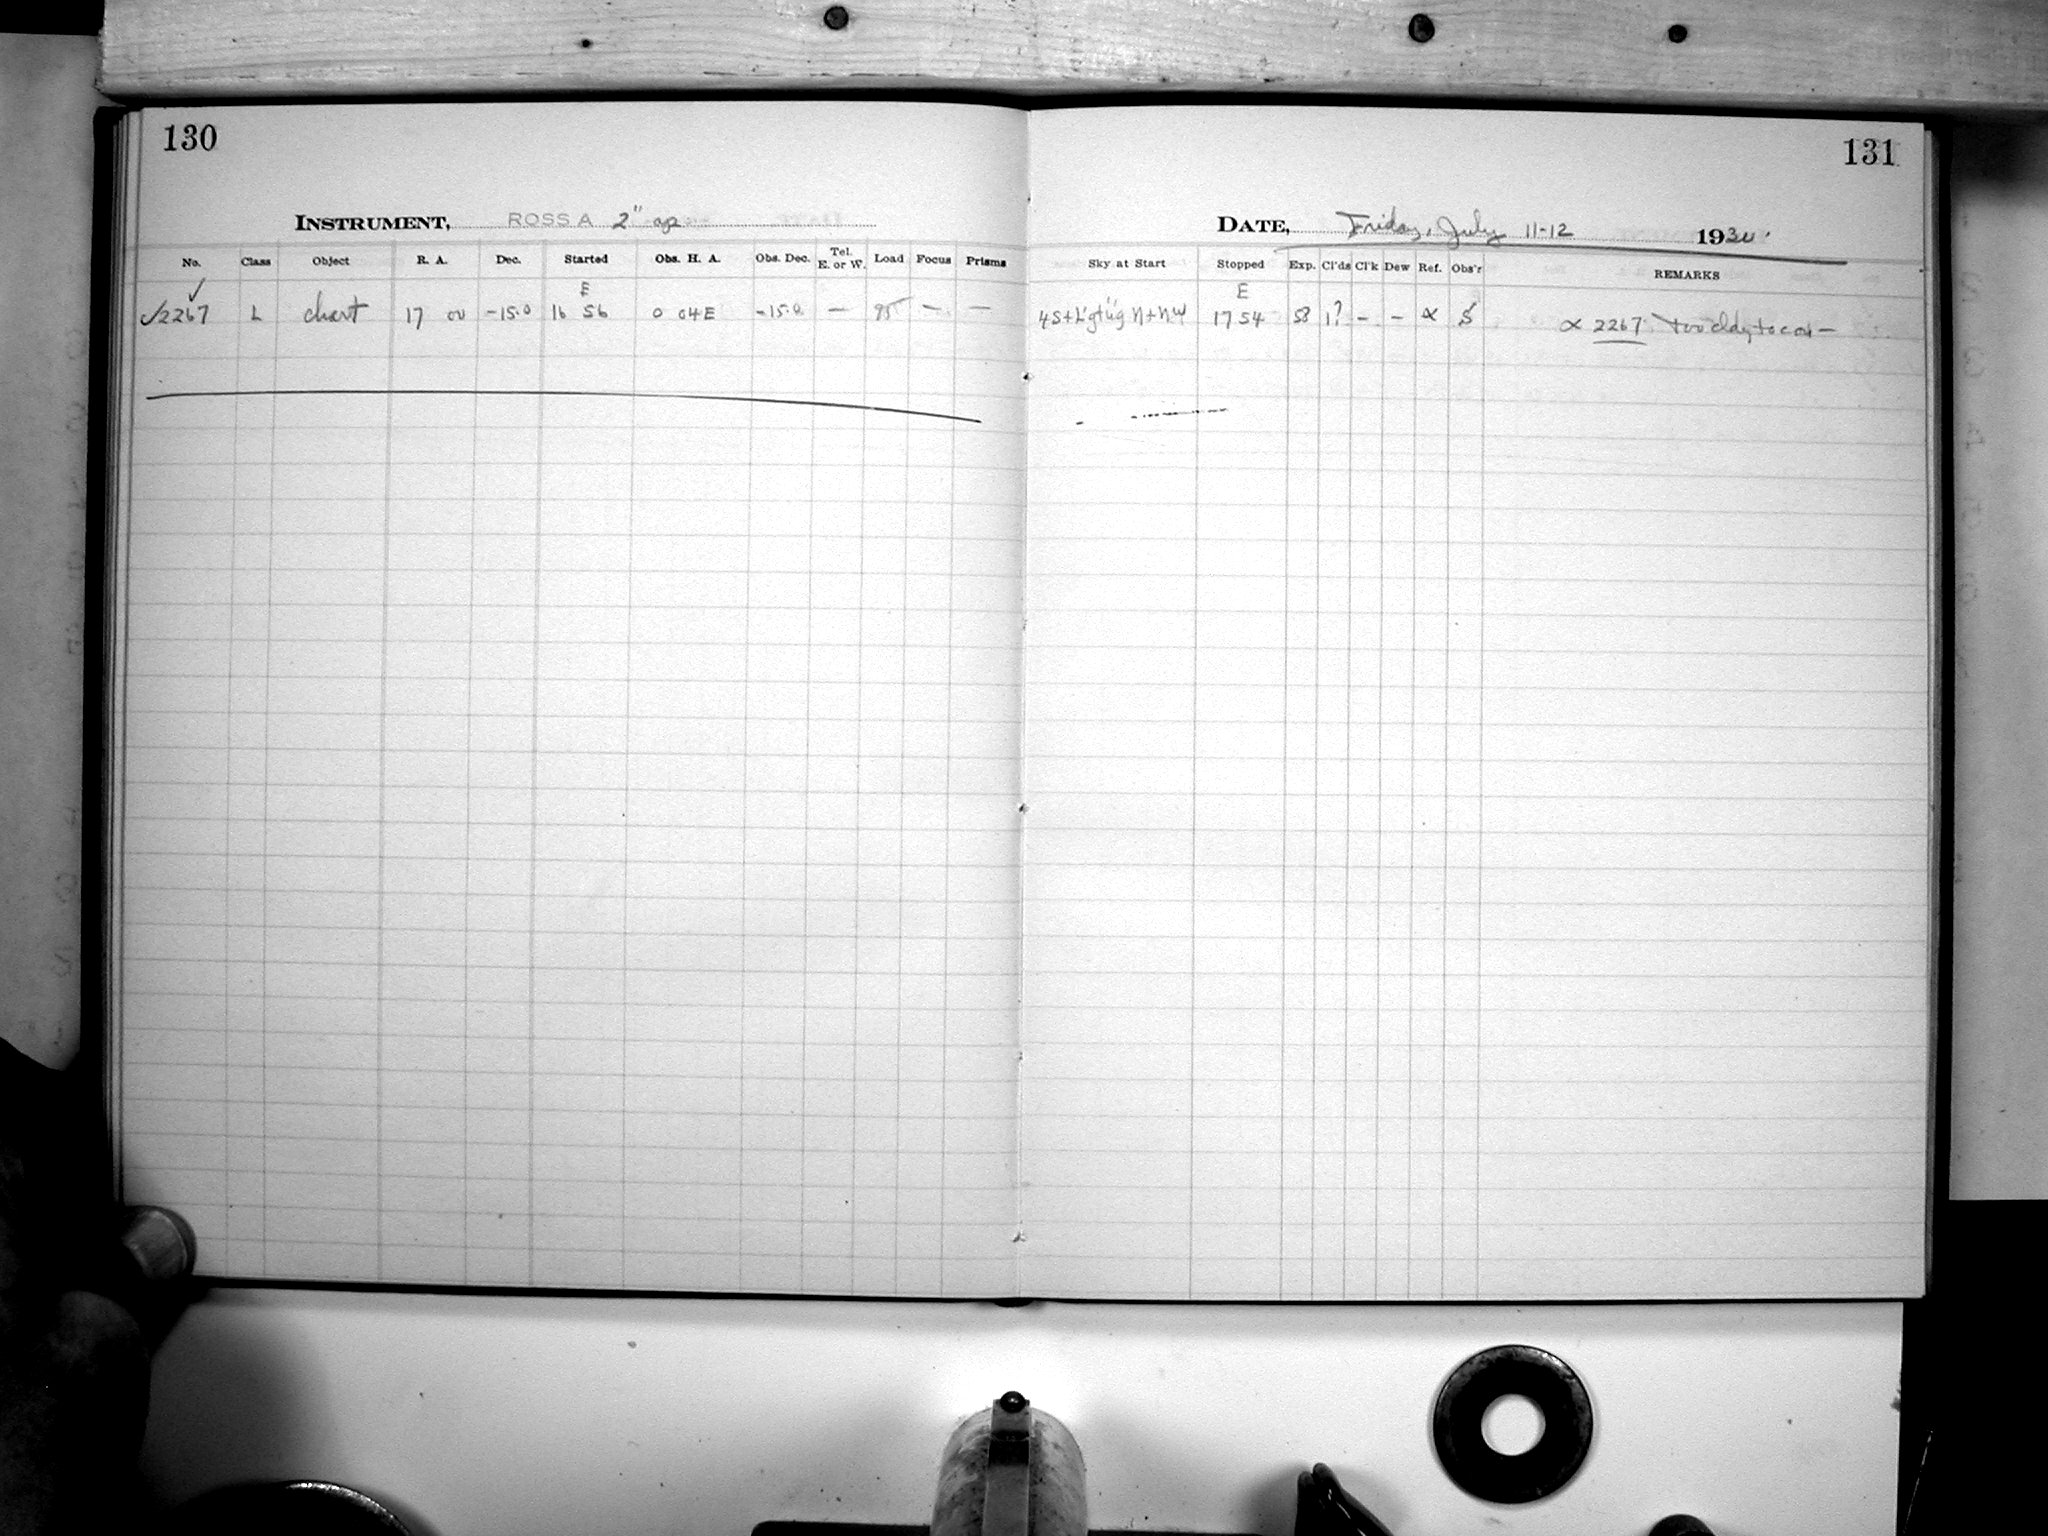 130
131
INSTRUMENT, ROSS A 2" ap
DATE, Friday, July 11-12 1930.
No. Class Object R. A. Dec. Started Obs. H. A. Obs. Dec. Tel. E. or W. Load Focus Prisms
Sky at Start Stopped Exp. Cl'ds Cl'k Dew Ref. Obs'r REMARKS
E
E
✓2267 L chart 17 00 -15.0 16 56 0 04E -15.0 — 95 — —
17 54 58 1? - - α S α 2267 too cldy to